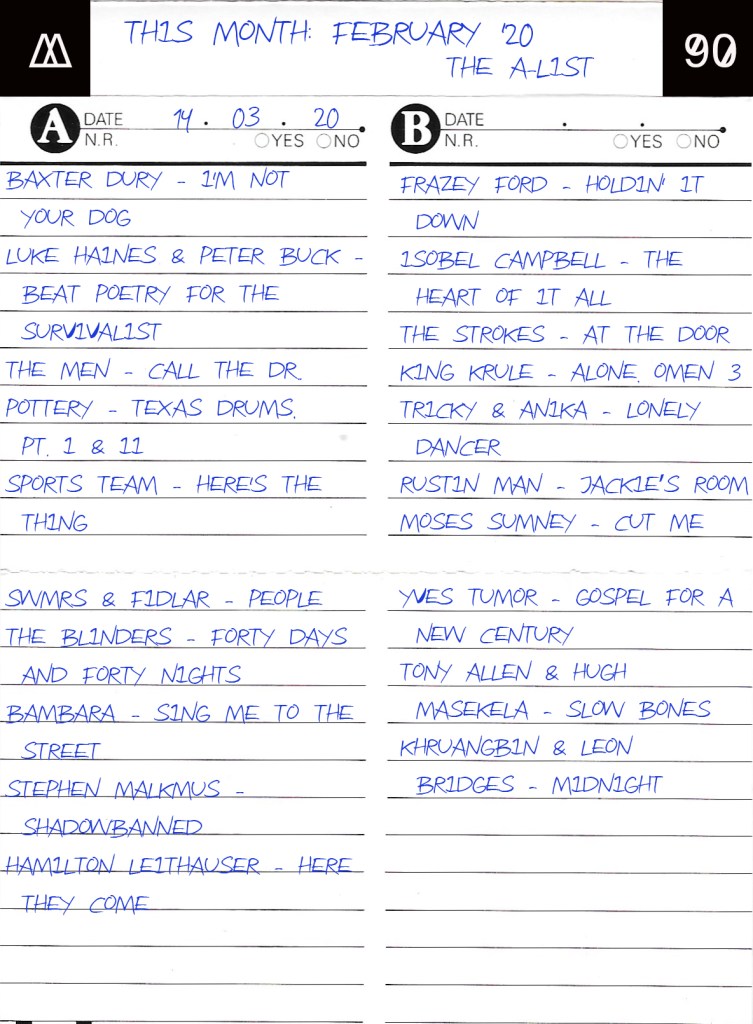 THIS MONTH: FEBRUARY '20
THE A-LIST
90
A DATE 14 . 03 . 20
N.R. YES NO
BAXTER DURY - I'M NOT
YOUR DOG
LUKE HAINES & PETER BUCK -
BEAT POETRY FOR THE
SURVIVALIST
THE MEN - CALL THE DR.
POTTERY - TEXAS DRUMS,
PT. 1 & 11
SPORTS TEAM - HERE'S THE
THING
SWMRS & FIDLAR - PEOPLE
THE BLINDERS - FORTY DAYS
AND FORTY NIGHTS
BAMBARA - SING ME TO THE
STREET
STEPHEN MALKMUS -
SHADOWBANNED
HAMILTON LEITHAUSER - HERE
THEY COME
B DATE . .
N.R. YES NO
FRAZEY FORD - HOLDIN' IT
DOWN
ISOBEL CAMPBELL - THE
HEART OF IT ALL
THE STROKES - AT THE DOOR
KING KRULE - ALONE, OMEN 3
TRICKY & ANIKA - LONELY
DANCER
RUSTIN MAN - JACKIE'S ROOM
MOSES SUMNEY - CUT ME
YVES TUMOR - GOSPEL FOR A
NEW CENTURY
TONY ALLEN & HUGH
MASEKELA - SLOW BONES
KHRUANGBIN & LEON
BRIDGES - MIDNIGHT